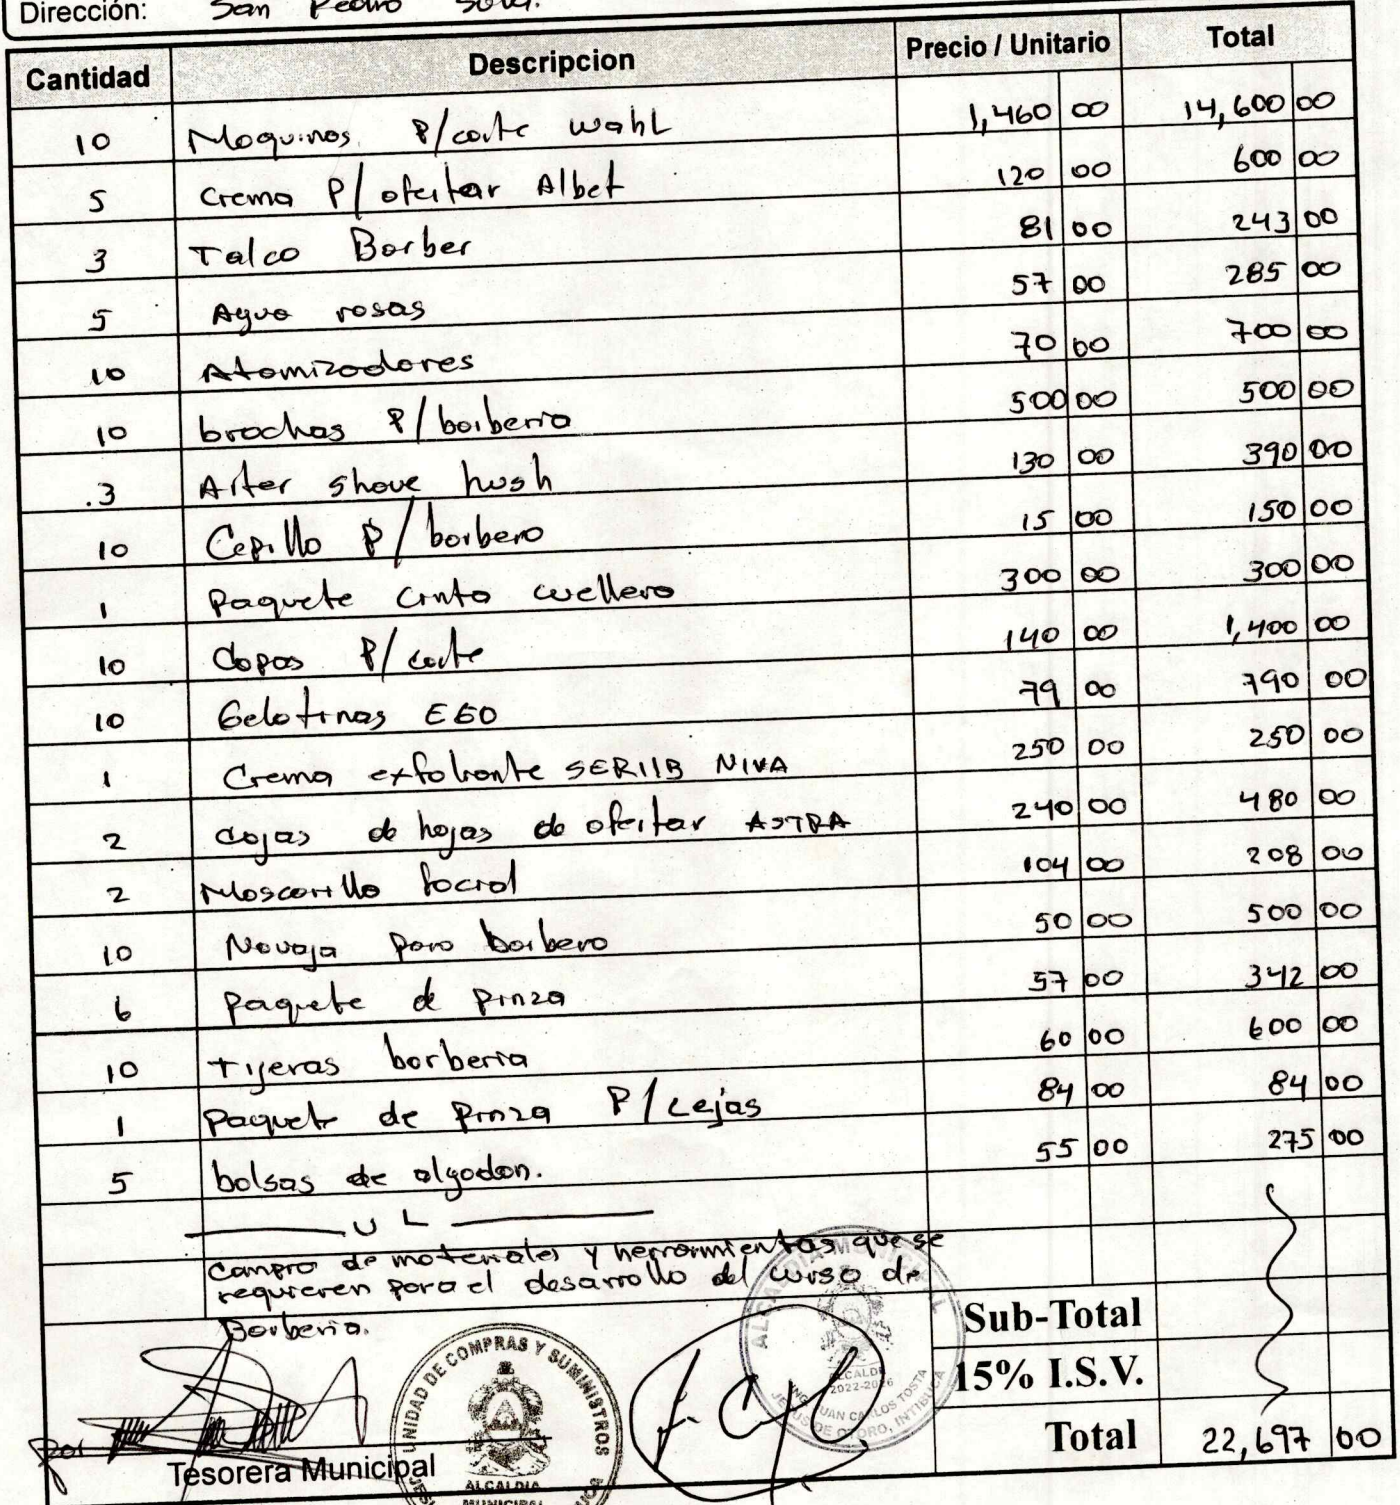 Dirección: San Pedro Sula.
Cantidad Descripcion Precio / Unitario Total
10 Maquinas P/corte wahl 1,460 00 14,600 00
5 Crema P/ afeitar Albet 120 00 600 00
3 Talco Barber 81 00 243 00
5 Agua rosas 57 00 285 00
10 Atomizadores 70 00 700 00
10 brochas P/barberia 500 00 500 00
3 After shave hush 130 00 390 00
10 Cepillo P/ barbero 15 00 150 00
1 Paquete cinta cuellera 300 00 300 00
10 Capas P/ corte 140 00 1,400 00
10 Gelatinas EGO 79 00 790 00
1 Crema exfoliante SERIIB NIVA 250 00 250 00
2 cajas de hojas de afeitar ASTRA 240 00 480 00
2 Mascarilla facial 104 00 208 00
10 Navaja para barbero 50 00 500 00
6 paquete de pinza 57 00 342 00
10 tijeras barberia 60 00 600 00
1 Paquete de pinza P/ cejas 84 00 84 00
5 bolsas de algodon. 55 00 275 00
U L
Campra de materiales y herramientas que se
requieren para el desarrollo del curso de
Barberia.
Sub-Total
15% I.S.V.
Total 22,697 00
Por
Tesorera Municipal
UNIDAD DE COMPRAS Y SUMINISTROS
ALCALDIA
MUNICIPAL
ALCALDE
2022-2026
ING. JUAN CARLOS TOSTA
JESUS DE OTORO, INTIBUCA